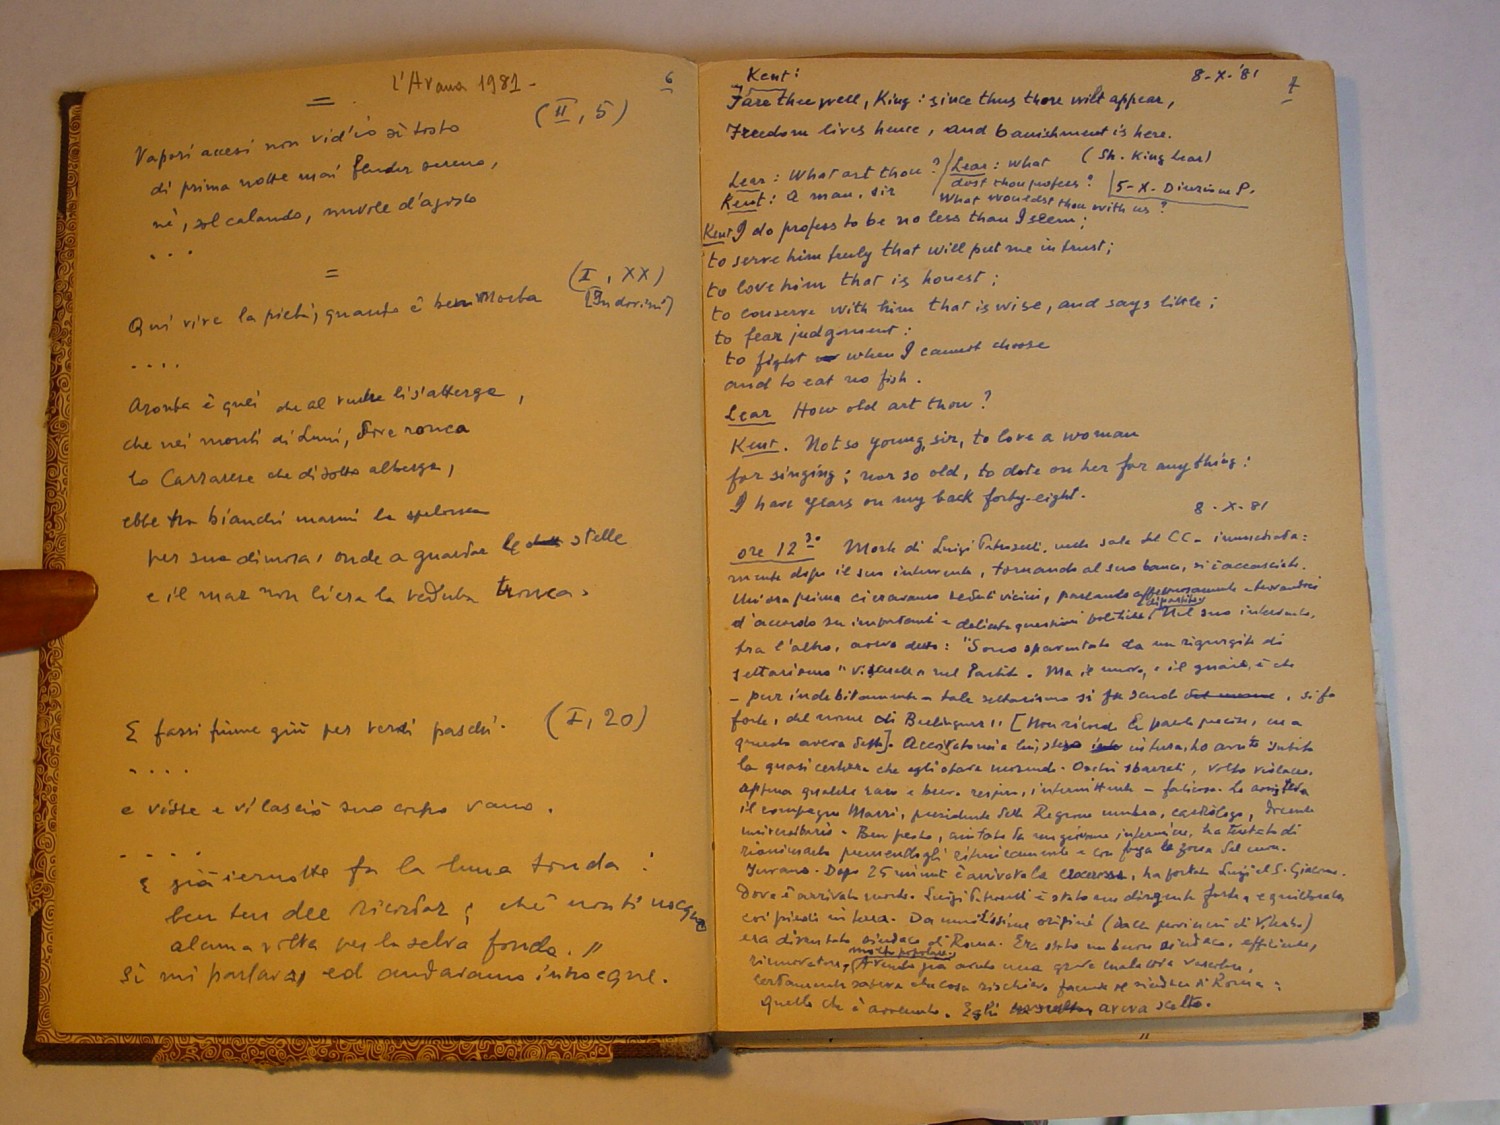 L'Avana 1981 -
6
(II, 5)
Vapori accesi non vid'io sì tosto
di prima notte mai fender sereno,
nè, sol calando, nuvole d'agosto
...
=
(I, XX)
[Indovini]
Qui vive la pietà, quanto è ben morta
....
Aronta è quei che al ventre li s'atterga,
che nei monti di Luni, dove ronca
lo Carrarese che di sotto alberga,
ebbe tra bianchi marmi la spelonca
per sua dimora, onde a guardar le stelle
e il mar non li era la veduta tronca.
E fassi fiume giù per verdi paschi. (I, 20)
....
e visse e vi lasciò suo corpo vano.
....
E già iernotte fu la luna tonda:
ben ten dee ricordar; chè non ti nocque
alcuna volta per la selva fonda."
Sì mi parlava, ed andavamo introcque.
Kent:
8-X-'81
7
Fare thee well, King: since thus thou wilt appear,
Freedom lives hence, and banishment is here.
(Sh. King Lear)
Lear: What art thou? / Lear: What
dost thou profess? 5-X- Direzione P.
Kent: A man, sir What wouldst thou with us?
Kent I do profess to be no less than I seem;
to serve him truly that will put me in trust;
to love him that is honest;
to converse with him that is wise, and says little;
to fear judgment:
to fight when I cannot choose
and to eat no fish.
Lear How old art thou?
Kent. Not so young, sir, to love a woman
for singing; nor so old, to dote on her for anything:
I have years on my back forty-eight.
8-X-81
ore 12.30 Morte di Luigi Petroselli, nella sala del CC- immediata=
mente dopo il suo intervento, tornando al suo banco, si è accasciato.
Un'ora prima ci eravamo seduti vicini, parlando affettuosamente e trovandoci
d'accordo su importanti e delicate questioni politiche (di partito). Nel suo intervento,
tra l'altro, aveva detto: "Sono spaventato da un rigurgito di
settarismo" nel Partito. Ma il nuovo, e il guaio, è che
- pur indebitamente - tale settarismo si fa scudo, si fa
forte, del nome di Berlinguer!! [Non ricordo le parole precise, ma
questo aveva detto]. Accostatomi a lui, steso in terra, ho avuto subito
la quasi certezza che egli stava morendo. Occhi sbarrati, volto violaceo,
appena qualche raro e breve respiro, intermittente - faticoso. Lo assisteva
il compagno Marri, presidente della Regione umbra, cardiologo, docente
universitario. Ben presto, aiutato da un giovane infermiere, ha tentato di
rianimarlo premendogli ritmicamente e con forza la zona del cuore.
Invano. Dopo 25 minuti è arrivata la crocerossa, ha portato Luigi al S. Giacomo.
Dove è arrivato morto. Luigi Petroselli è stato un dirigente forte, e equilibrato,
coi piedi in terra. Da umilissime origini (dalla provincia di Viterbo)
era diventato sindaco di Roma. Era stato un buon sindaco, efficiente,
rinnovatore, molto popolare. Avendo già avuto una grave malattia vascolare,
certamente sapeva che cosa rischiava facendo il sindaco di Roma:
quello che è avvenuto. Egli aveva scelto.